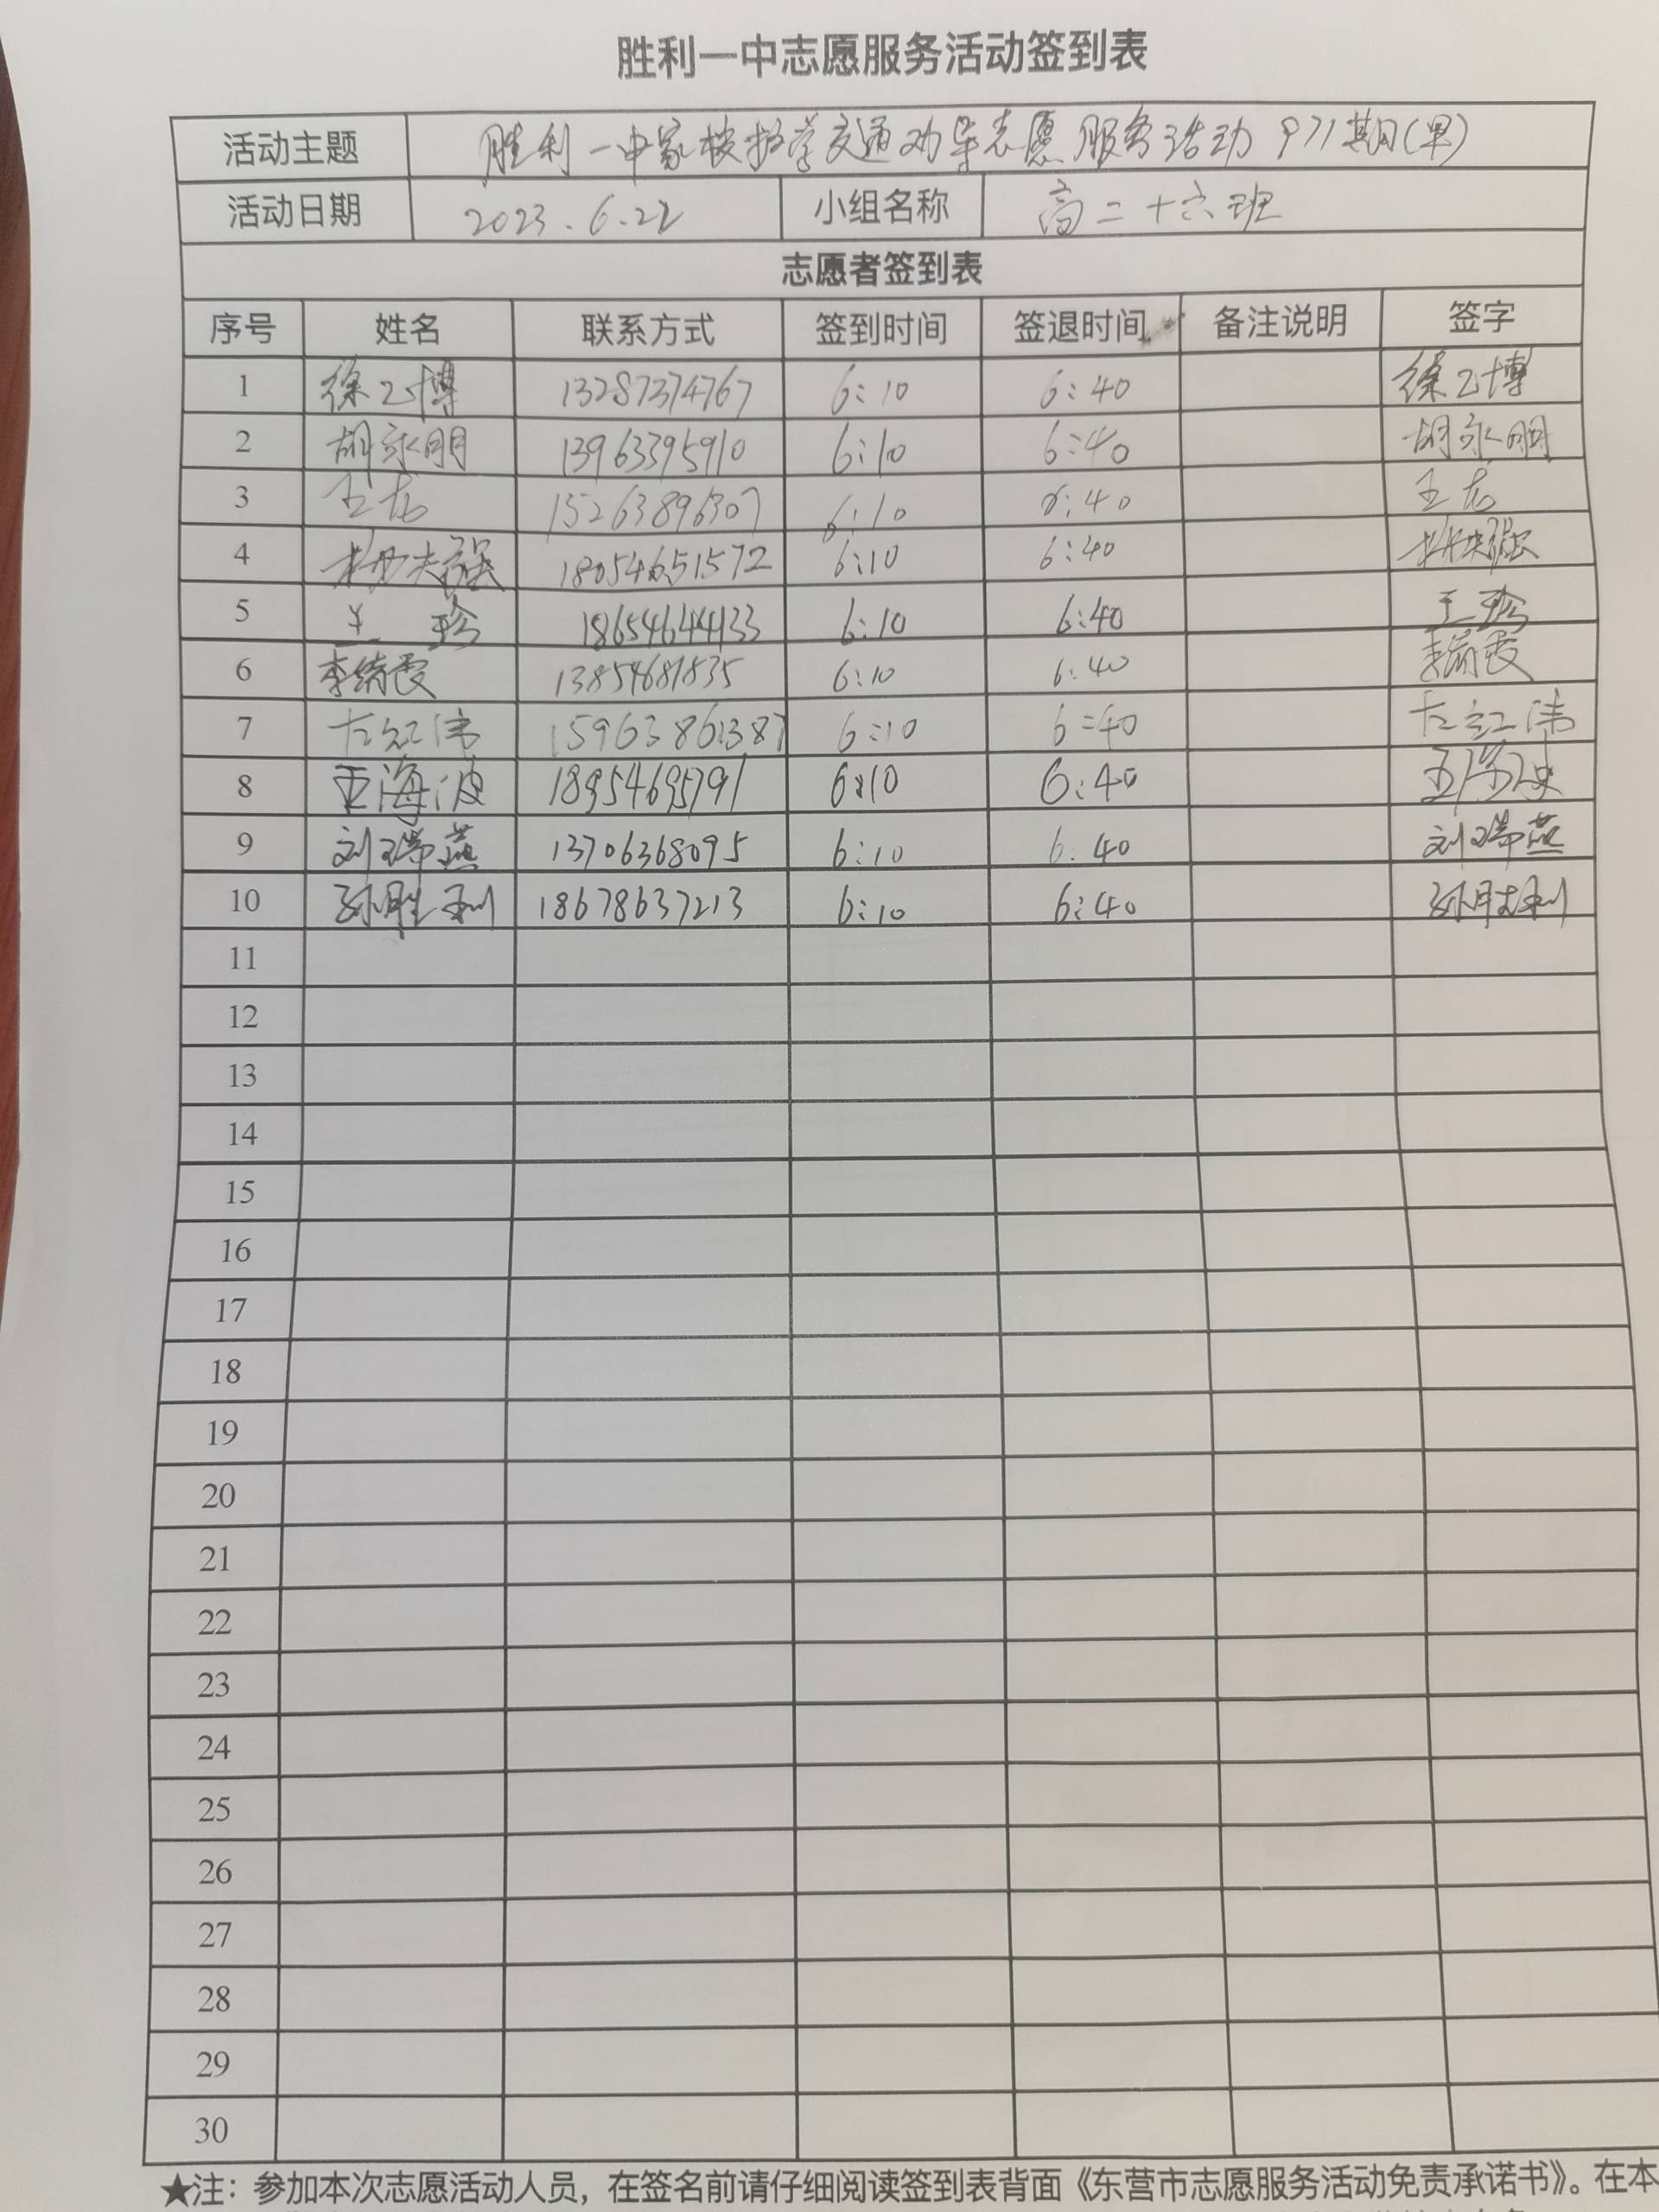 胜利一中志愿服务活动签到表
活动主题 胜利一中家校护学交通劝导志愿服务活动971期(早)
活动日期 2023.6.22 小组名称 高二十六班
志愿者签到表
序号 姓名 联系方式 签到时间 签退时间 备注说明 签字
1 徐玉博 13287374767 6:10 6:40 徐玉博
2 胡永朋 13963395910 6:10 6:40 胡永朋
3 王龙 15263896307 6:10 6:40 王龙
4 18054651572 6:10 6:40
5 王珍 18654644133 6:10 6:40 王珍
6 李绪霞 13854681535 6:10 6:40 李绪霞
7 左红伟 15963861387 6:10 6:40 左红伟
8 王海波 18954695791 6:10 6:40 王海波
9 刘瑞燕 13706368095 6:10 6:40 刘瑞燕
10 孙胜利 18678637213 6:10 6:40 孙胜利
11
12
13
14
15
16
17
18
19
20
21
22
23
24
25
26
27
28
29
30
★注：参加本次志愿活动人员，在签名前请仔细阅读签到表背面《东营市志愿服务活动免责承诺书》。在本